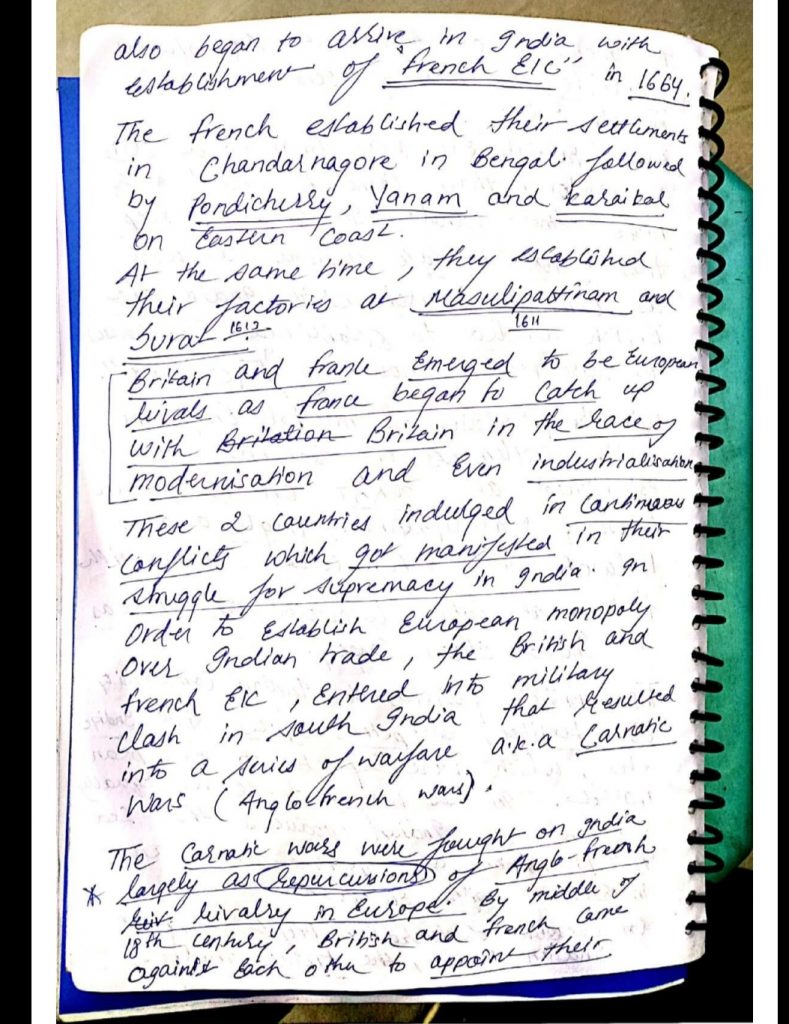 also began to arrive in India with
establishment of "French EIC" in 1664.
The french established their settlements
in Chandarnagore in Bengal followed
by Pondicherry, Yanam and Karaikal
on Eastern Coast.
At the same time, they established
their factories at Masulipattinam and
1611
Surat 1613.
Britain and france Emerged to be European
rivals as france began to Catch up
with Britation Britain in the race of
modernisation and Even industrialisation
These 2 Countries indulged in Continuous
Conflicts which got manifested in their
struggle for supremacy in India. In
Order to Establish European monopoly
Over Indian trade, the British and
french EIC, Entered into military
Clash in south India that resulted
into a series of warfare a.k.a Carnatic
Wars (Anglo-french wars).
The Carnatic wars were fought on India
* largely as repurcussions of Anglo-french
rivalry in Europe. By middle of
18th Century, British and french came
against Each other to appoint their